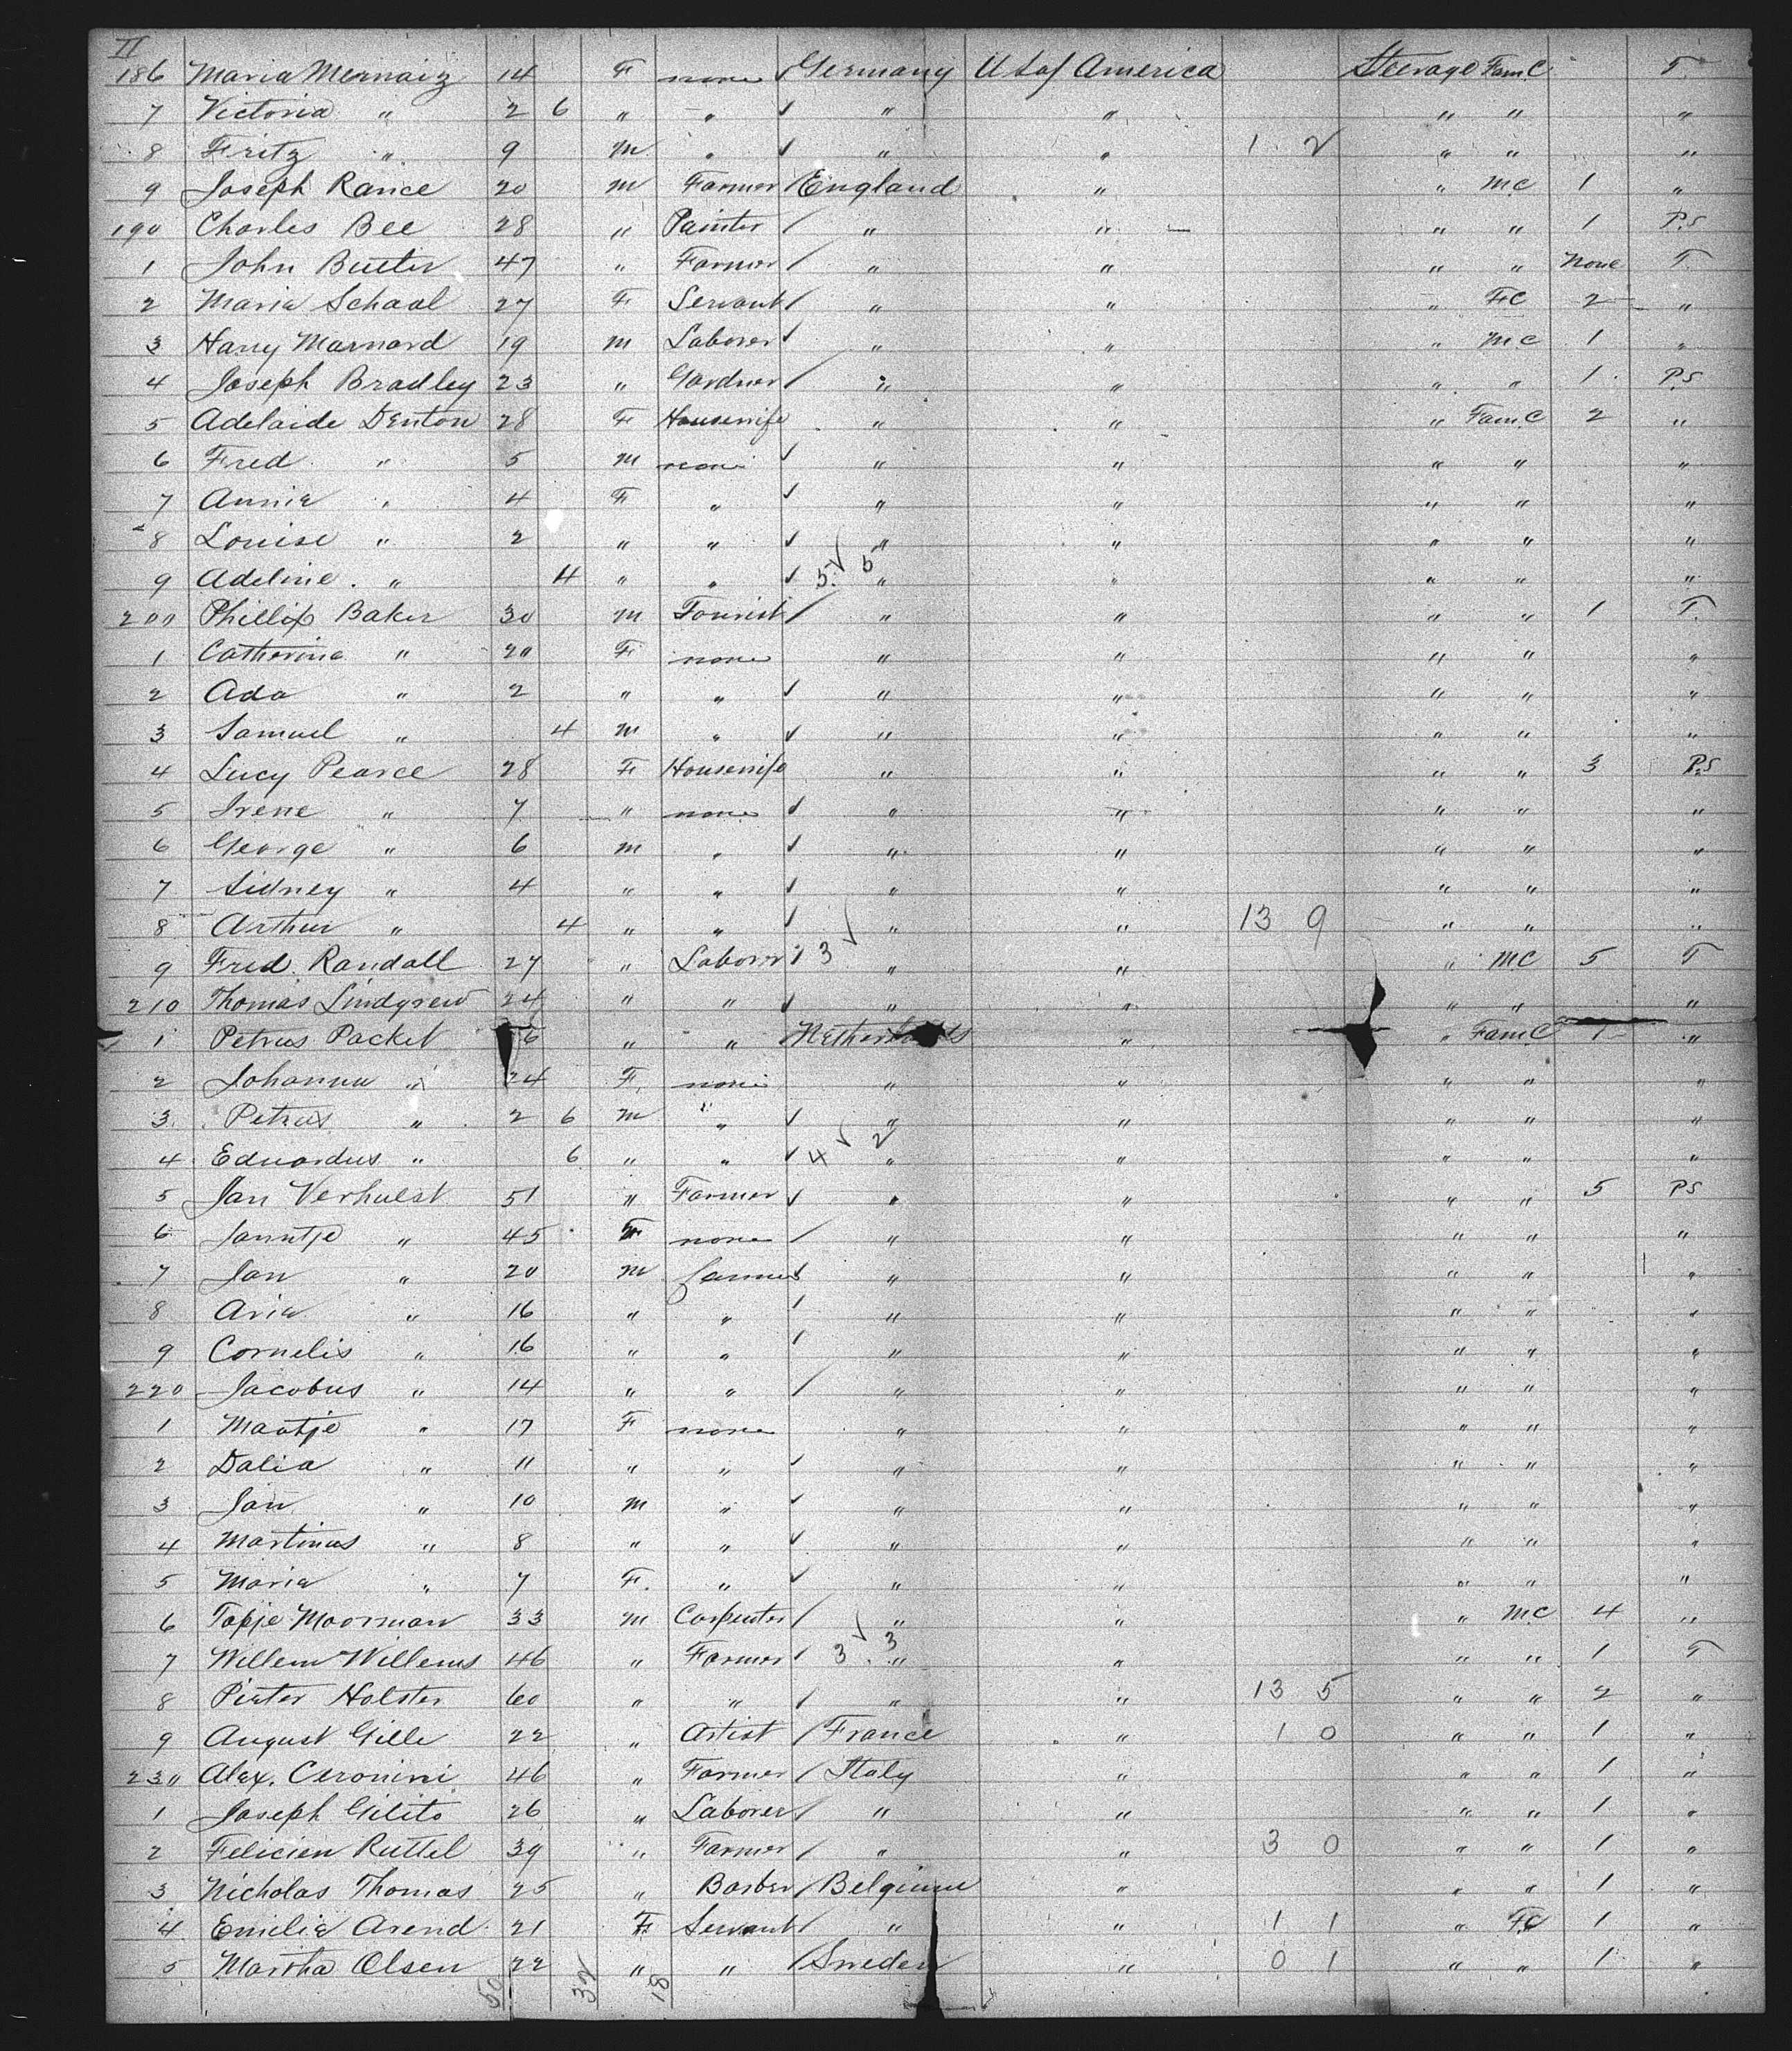 II
186 Maria Mernaiz 14 F none ✓ Germany U S of America Steerage Fam.C T.
7 Victoria " 2 6 " " ✓ " " " " "
8 Fritz " 9 m " ✓ " " 1 2 " " "
9 Joseph Rance 20 m Farmer / England " " m.c 1 "
190 Charles Bee 28 " Painter / " " " " 1 P.S
1 John Butter 47 " Farmer / " " " " None T.
2 Maria Schaal 27 F Servant / " " " F C 2 "
3 Harry Marnard 19 m Laborer ✓ " " " m.c 1 "
4 Joseph Bradley 23 " Gardner / " " " " 1 P.S
5 Adelaide Denton 28 F Housewife " " " Fam.C 2 "
6 Fred " 5 m none ✓ " " " " "
7 Annie " 4 F " ✓ " " " " "
8 Louise " 2 " " ✓ " " " " "
9 Adeline " 4 " " ✓ 5 ✓ 5 " " " " "
200 Phillip Baker 30 m Tourist / " " " " 1 T.
1 Catherine " 20 F none " " " " "
2 Ada " 2 " " ✓ " " " " "
3 Samuel " 4 m " ✓ " " " " "
4 Lucy Pearce 28 F Housewife " " " " 3 P.S
5 Irene " 7 " none ✓ " " " " "
6 George " 6 m " ✓ " " " " "
7 Sidney " 4 " " ✓ " " " " "
8 Arthur " 4 " " ✓ " " 13 9 " " "
9 Fred. Randall 27 " Laborer ✓ 3 ✓ " " " m C 5 T
210 Thomas Lindgrew 24 " " ✓ " " " " "
1 Petrus Packet 6 " " Netherlands " " Fam.C 1 "
2 Johanna " 24 F none " " " " "
3 Petrus " 2 6 m " ✓ " " " " "
4 Eduardus " 6 " " ✓ 4 ✓ 2 " " " " "
5 Jan Verhulst 51 " Farmer ✓ " " " " 5 P S
6 Janntje " 45 F none / " " " " "
7 Jan " 20 m farmer ✓ " " " " "
8 Aria " 16 " " / " " " " "
9 Cornelis " 16 " " / " " " " "
220 Jacobus " 14 " " / " " " " "
1 Maatje " 17 F none " " " " "
2 Dalia " 11 " " ✓ " " " " "
3 Jan " 10 m " ✓ " " " " "
4 Martinus " 8 " " ✓ " " " " "
5 Maria " 7 F. " ✓ " " " " "
6 Tapje Moorman 33 m Carpenter / " " " m.c 4 "
7 Willem Willems 46 " Farmer / 3 ✓ 3 " " " " 1 T
8 Pieter Holster 60 " " / " " 13 5 " " 2 "
9 August Gille 22 " Artist / France " 1 0 " " 1 "
230 Alex. Ceronini 46 " Farmer / Italy " " " 1 "
1 Joseph Gilito 26 " Laborer / " " " " 1 "
2 Felicien Ruttel 39 " Farmer / " " 3 0 " " 1 "
3 Nicholas Thomas 25 " Barber / Belgium " " " 1 "
4 Emilie Arend 21 F Servant / " " 1 1 " F C 1 "
5 Martha Olsen 22 " " / Sweden " 0 1 " " 1 "
50 32 18